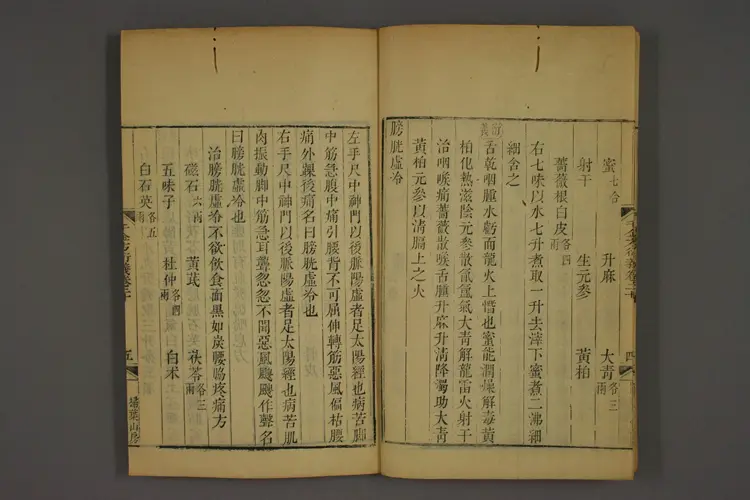 蜜七合　升麻　大青各三兩
射干　生元參　黃柏
薔薇根白皮各四兩
右七味以水七升煮取一升去滓下蜜煮二沸細
細含之
舌乾咽腫水虧而龍火上僭也蜜能潤燥解毒黃
柏化熱滋陰元參散氤氳氣大青解龍雷火射干
治咽喉痛薔薇散喉舌腫升麻升清降濁助大青
黃柏元參以清膈上之火
膀胱虛冷
四
左手尺中神門以後脈陽虛者足太陽經也病苦腳
中筋急腹中痛引腰背不可屈伸轉筋惡風偏枯腰
痛外踝後痛名曰膀胱虛冷也
右手尺中神門以後脈陽虛者足太陽經也病苦肌
肉振動腳中筋急耳聾忽忽不聞惡風颼颼作聲名
曰膀胱虛冷也
治膀胱虛冷不欲飲食面黑如炭腰脇疼痛方
磁石六兩　黃芪　茯苓各三兩
五味子　杜仲各四兩　白朮
白石英各五兩
五
掃葉山房